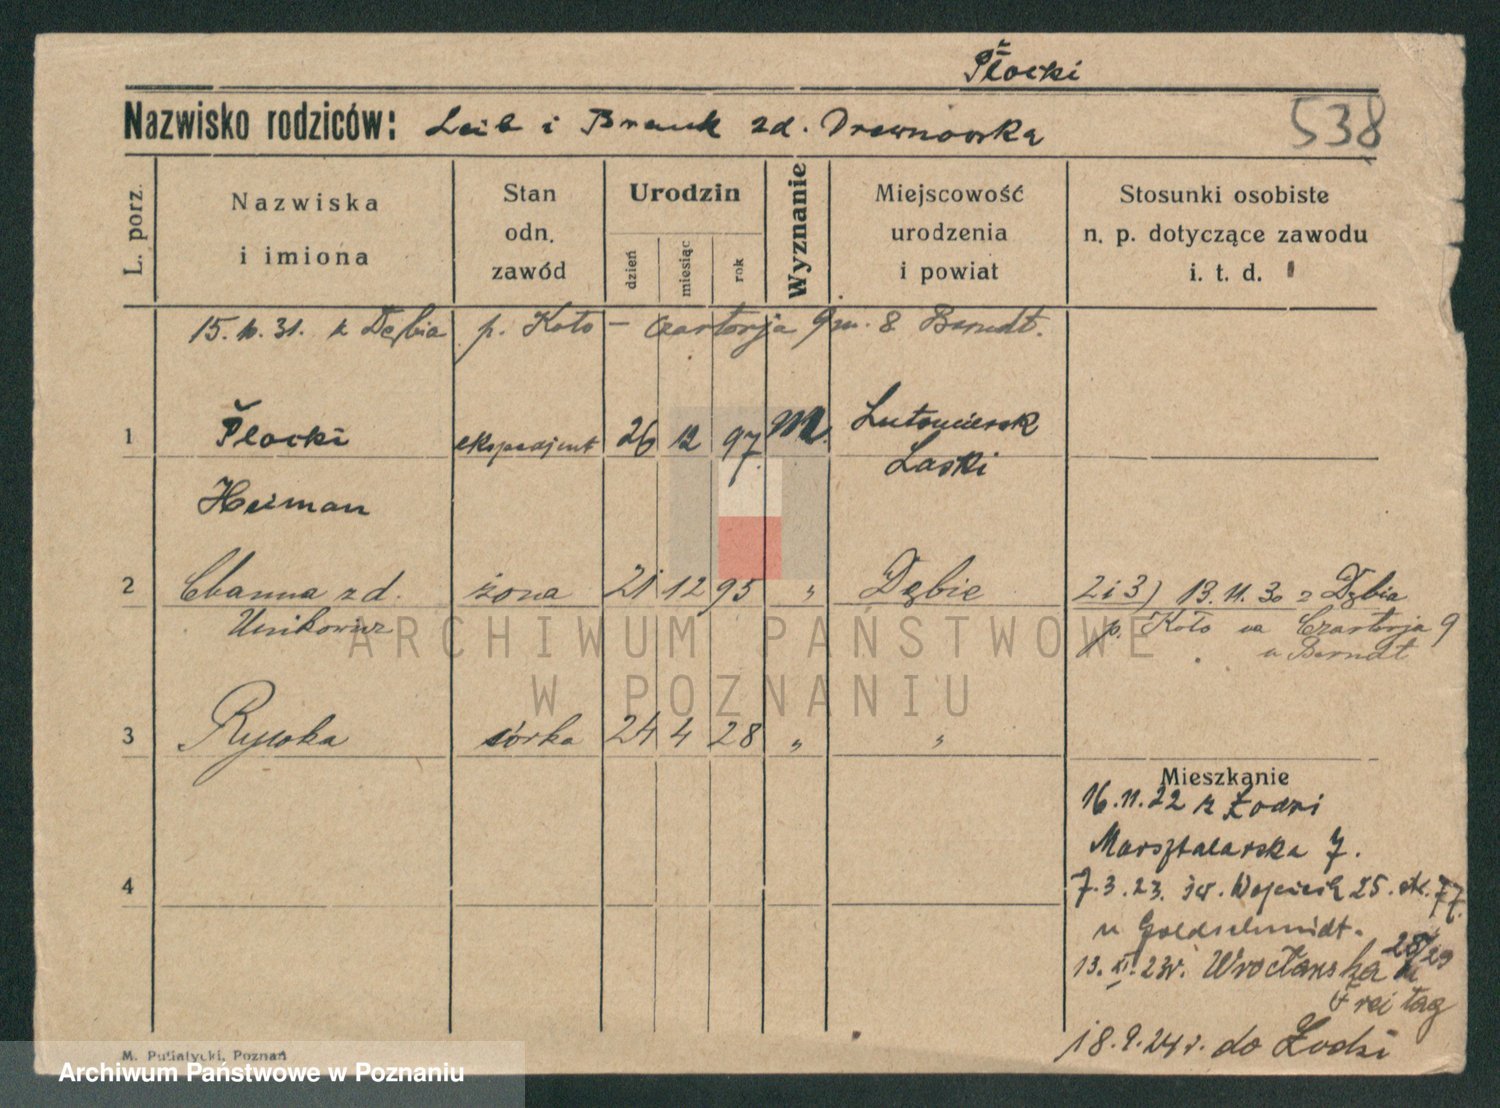 Płocki
Nazwisko rodziców: Leib i Brauk zd. Drewnowska
538
L. porz.
Nazwiska
i imiona
Stan
odn.
zawód
Urodzin
dzień
miesiąc
rok
Wyznanie
Miejscowość
urodzenia
i powiat
Stosunki osobiste
n. p. dotyczące zawodu
i. t. d.
15. 31. z Dębia p. Koło - Czartorja 9 m. 8 Berndt.
1 Płocki ekspedjent 26 12 97 M. Lutomiersk
Łaski
Heiman
2 Channa zd. żona 21 12 95 " Dębie 2 i 3) 13. 11. 30 z Dębia
Unikowicz p. Koło na Czartorja 9
u Berndt
ARCHIWUM PAŃSTWOWE
W POZNANIU
3 Rywka córka 24 4 28 " "
Mieszkanie
16. 11. 22 z Łodzi
Marsztalarska 7.
4
7. 3. 23. św. Wojciech 25. 77.
u Goldschmidt.
13. XI. 23r. Wrocławska 28/29
u Freitag
18. 9. 24 r. do Łodzi
M. Putiatycki, Poznań
Archiwum Państwowe w Poznaniu